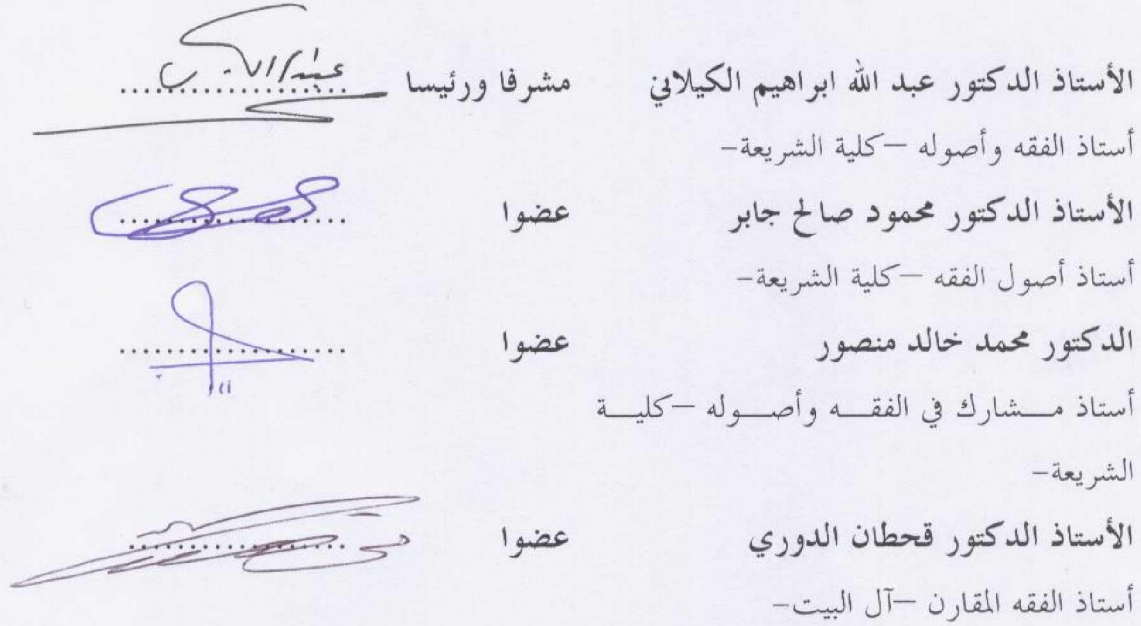 الأستاذ الدكتور عبد الله ابراهيم الكيلاني مشرفا ورئيسا ....................
أستاذ الفقه وأصوله –كلية الشريعة–
الأستاذ الدكتور محمود صالح جابر عضوا ....................
أستاذ أصول الفقه –كلية الشريعة–
الدكتور محمد خالد منصور عضوا ....................
أستاذ مـــشارك في الفقـــه وأصـــوله –كليـــة
الشريعة–
الأستاذ الدكتور قحطان الدوري عضوا ....................
أستاذ الفقه المقارن –آل البيت–